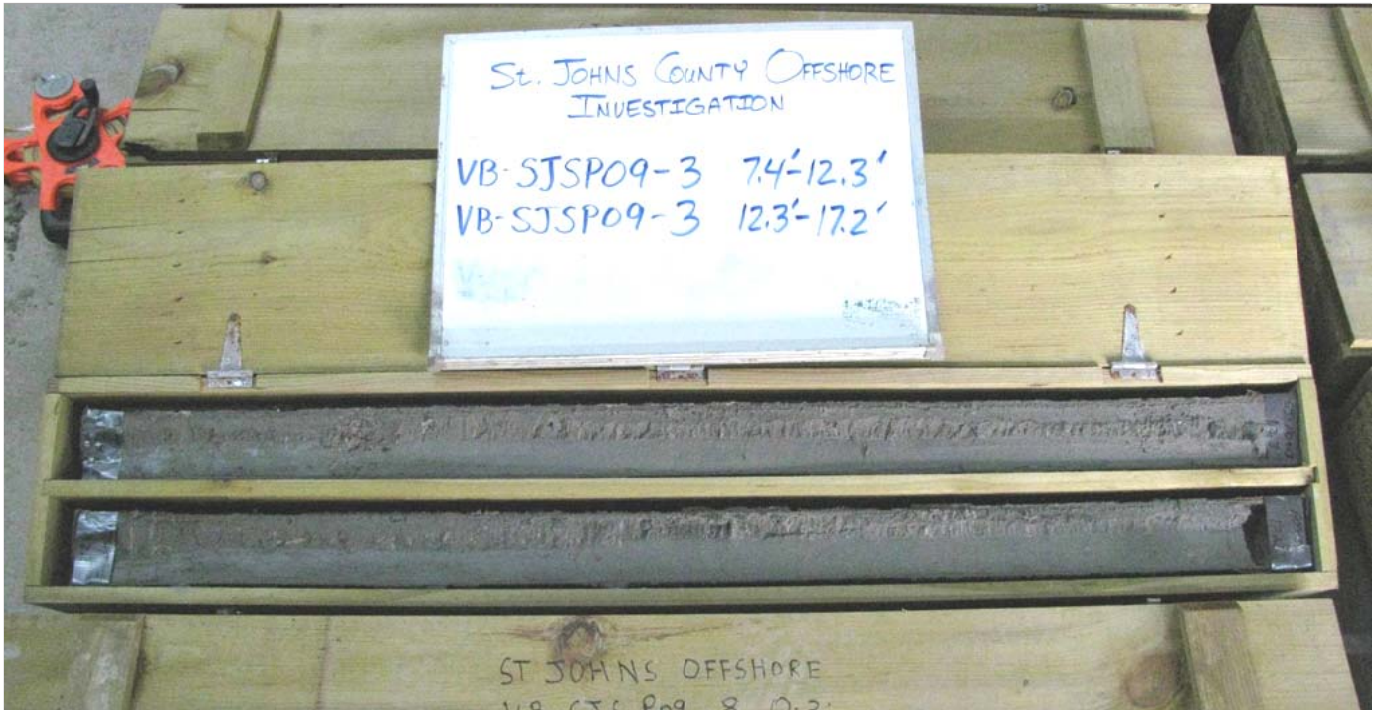 St. JOHNS COUNTY OFFSHORE
INVESTIGATION
VB-SJSP09-3 7.4'-12.3'
VB-SJSP09-3 12.3'-17.2'
ST JOHNS OFFSHORE